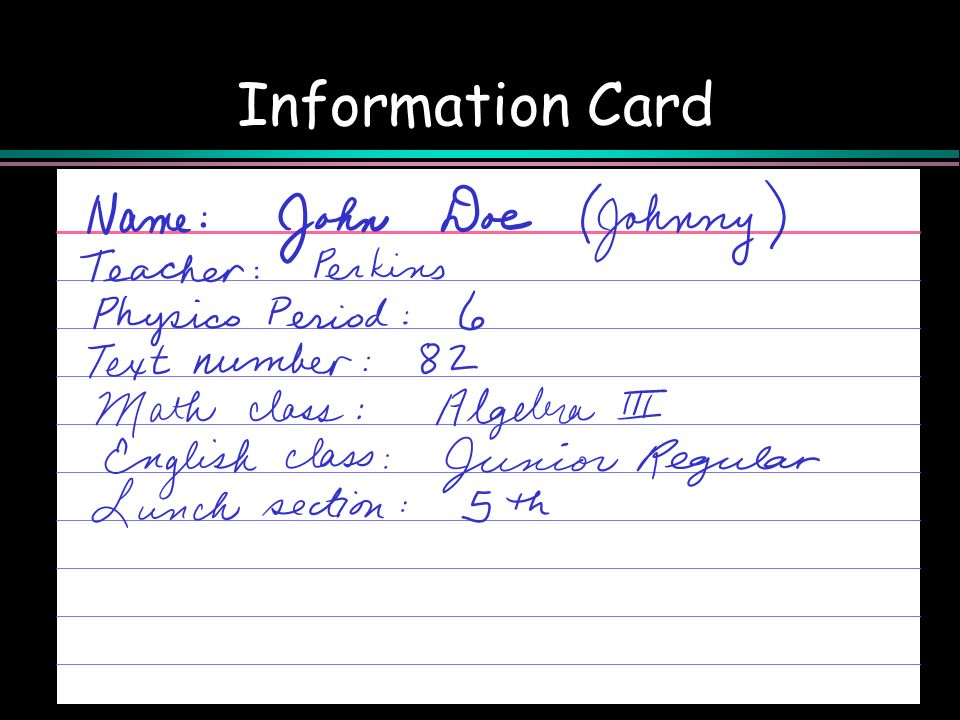 Information Card
Name: John Doe (Johnny)
Teacher: Perkins
Physics Period: 6
Text number: 82
Math class: Algebra III
English class: Junior Regular
Lunch section: 5th